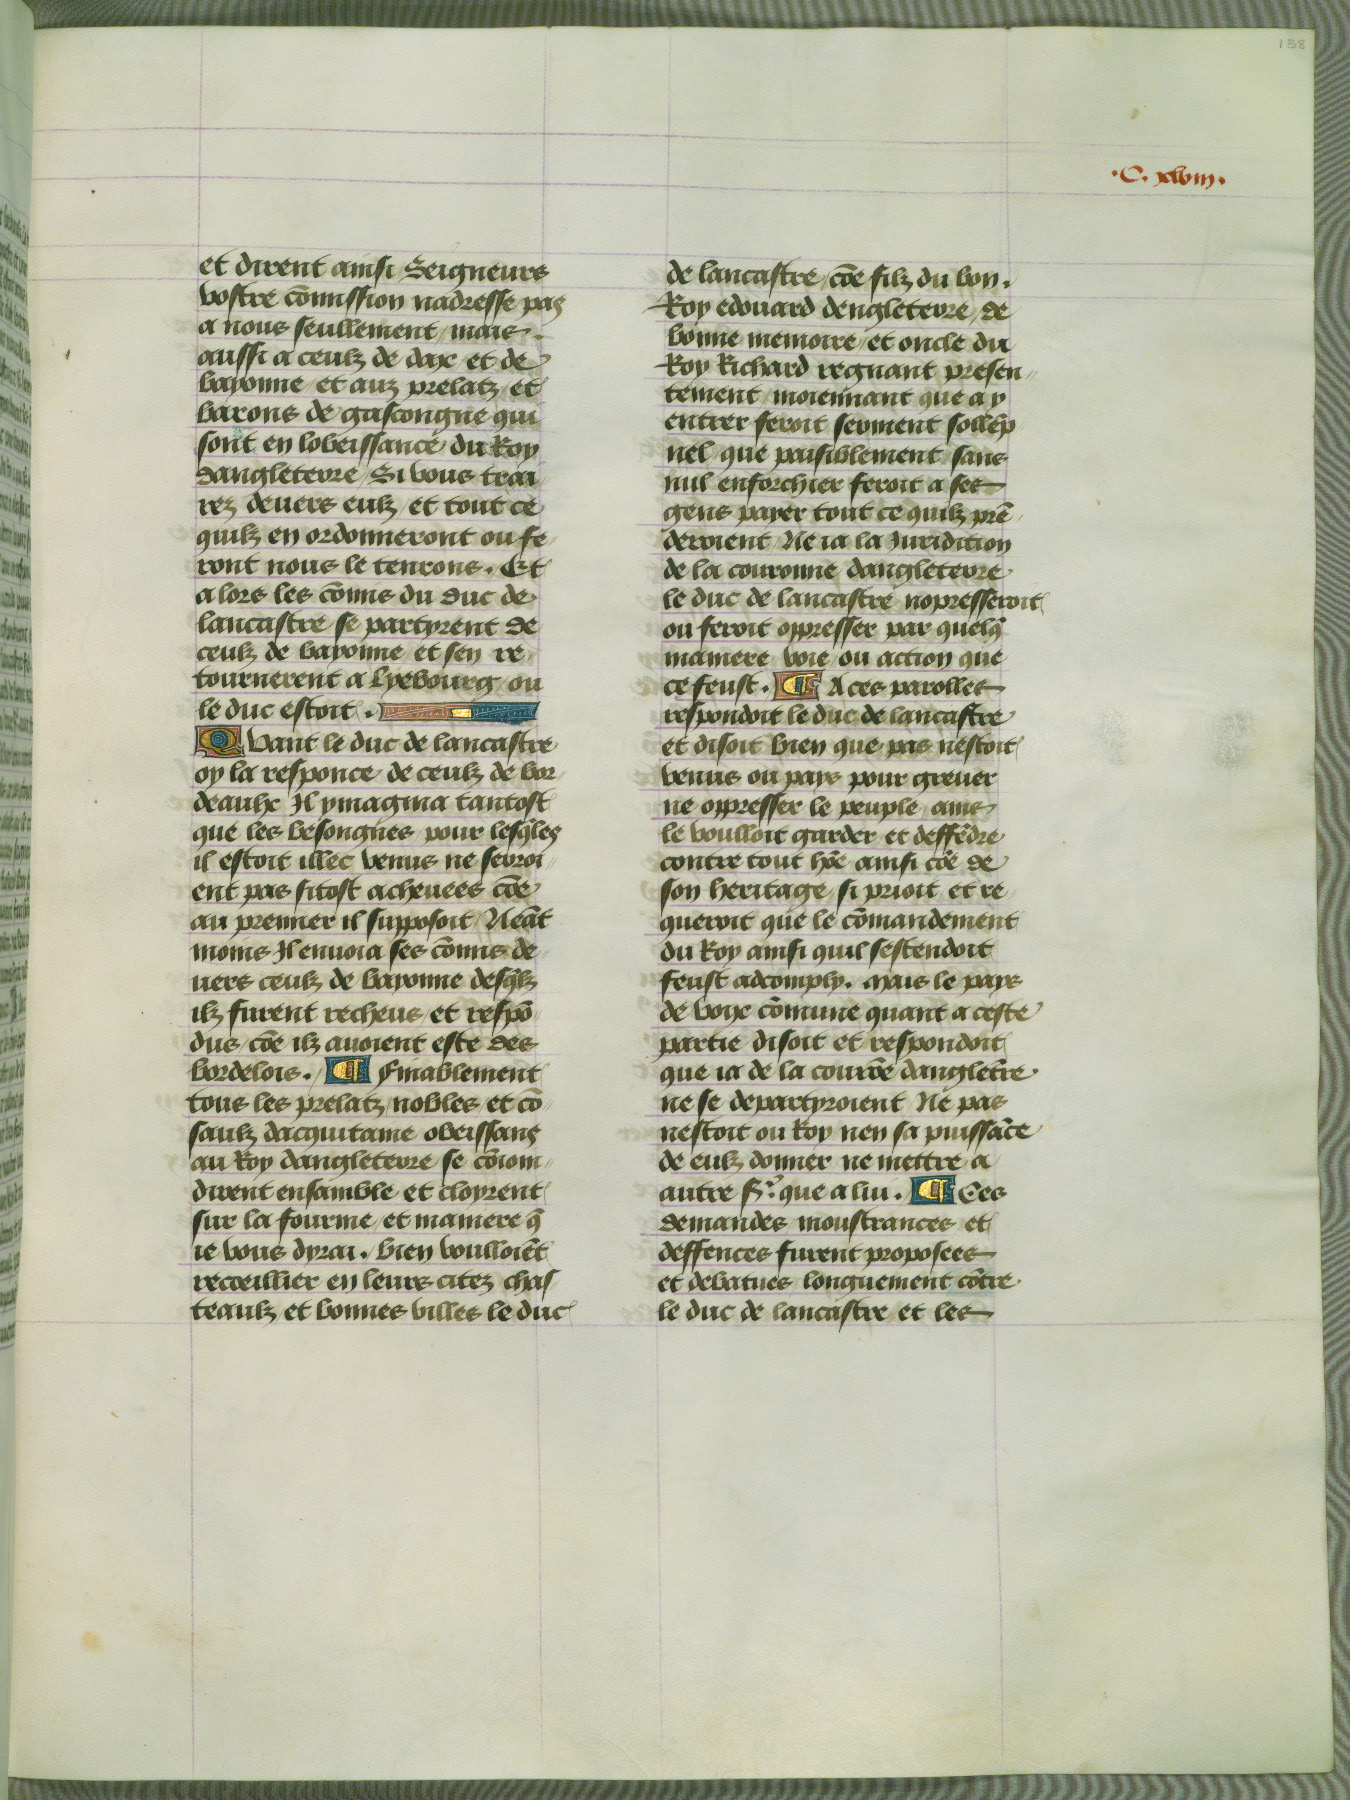 138
.C. xlviii.
et dirent ainsi Seigneurs
vostre cōmission nadresse pas
a nous seullement / mais .
aussi a ceulz de dax et de
bayonne / et auz prelatz / et
barons de gascongne qui
sont en lobeissance du Roy
dangleterre / Si vous trai
rez deuers eulz / et tout ce
quilz en ordonneront ou fe
ront nous le tenrons . Et
a lors les cōmis du duc de
lancastre se partyrent de
ceulz de bayonne / et sen re
tournerent a lyebourg / ou
le duc estoit .
Quant le duc de lancastre
oy la responce de ceulz de bor
deaulx Il ymagina tantost
que les besongnes pour lesqles
il estoit illec venus ne seroi
ent pas sitost acheuees cōe
au premier il supposoit / Neāt
moins Il enuoia ses cōmis de
uers ceulz de bayonne desqlz
ilz furent recheus / et respō
dus / cōe ilz auoient este des
bordelois . ¶ Finablement
tous les prelatz / nobles / et cō
saulz dacquitaine obeissans
au Roy dangleterre se cōioin
dirent ensamble / et cloyrent
sur la fourme / et maniere q̄
ie vous dyrai . bien voulloiēt
recoeillier en leurs citez chas
teaulz et bonnes villes le duc
de lancastre / cōe filz du bon .
Roy edouard dengleterre / de
bonne memoire / et oncle du
Roy Richard regnant presen
tement / moiennant que a y
entrer feroit serment sollēp
nel / que paisiblement / sans
nul enforchier feroit a ses
gens payer tout ce quilz prē
deroient / Ne ia la Juridition
de la couronne dangleterre
le duc de lancastre nopresseroit
ou feroit oppresser par quelq̄
maniere / voie / ou action que
ce feust . ¶ A ces parolles
respondoit le duc de lancastre
et disoit bien que pas nestoit
venus ou pays pour greuer
ne oppresser le peuple / ains
le voulloit garder / et deffēdre
contre tout hōe / ainsi cōe de
son heritage / si prioit et re
queroit que le cōmandement
du Roy ainsi quil sestendoit
feust adcomply . Mais le pays
de voye cōmune quant a ceste
partie disoit et respondoit
que ia de la courōe dangletre
ne se departyroient / Ne pas
nestoit ou Roy nen sa puissāce
de eulz donner ne mettre a
autre Sr. que a lui . ¶ Ces
demandes moustrances et
deffences furent proposees
et debatues longuement cōtre
le duc de lancastre / et les